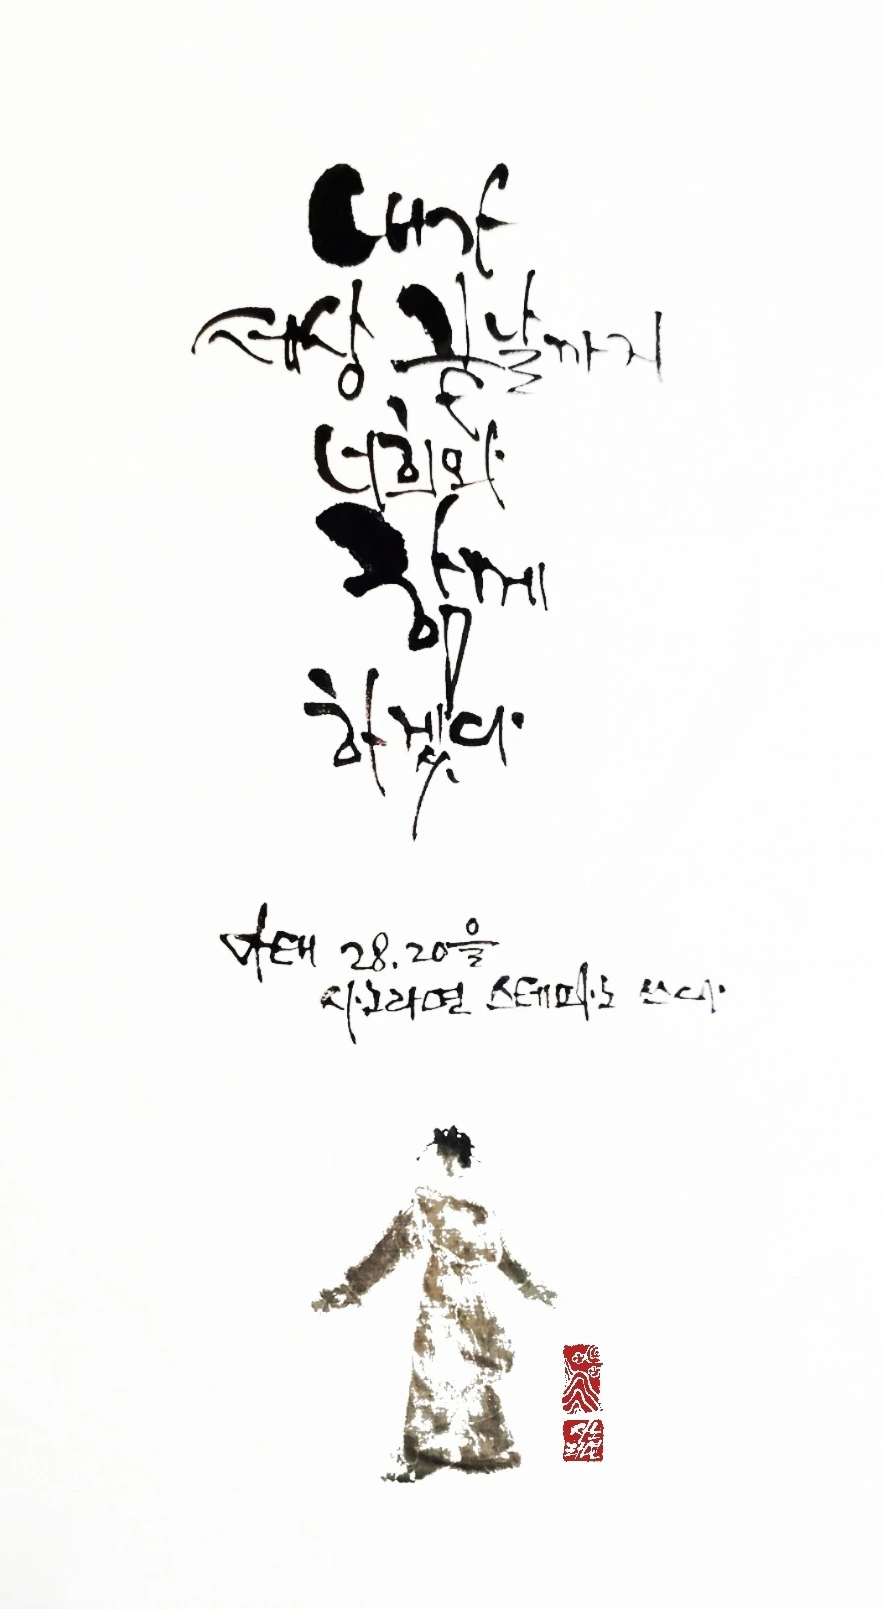 내가
세상 끝날까지
너희와
함께
하겠다
마태 28.20을
스테파노 쓰다